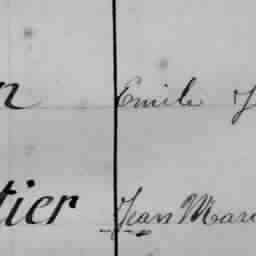 Emile
tier Jean Mari